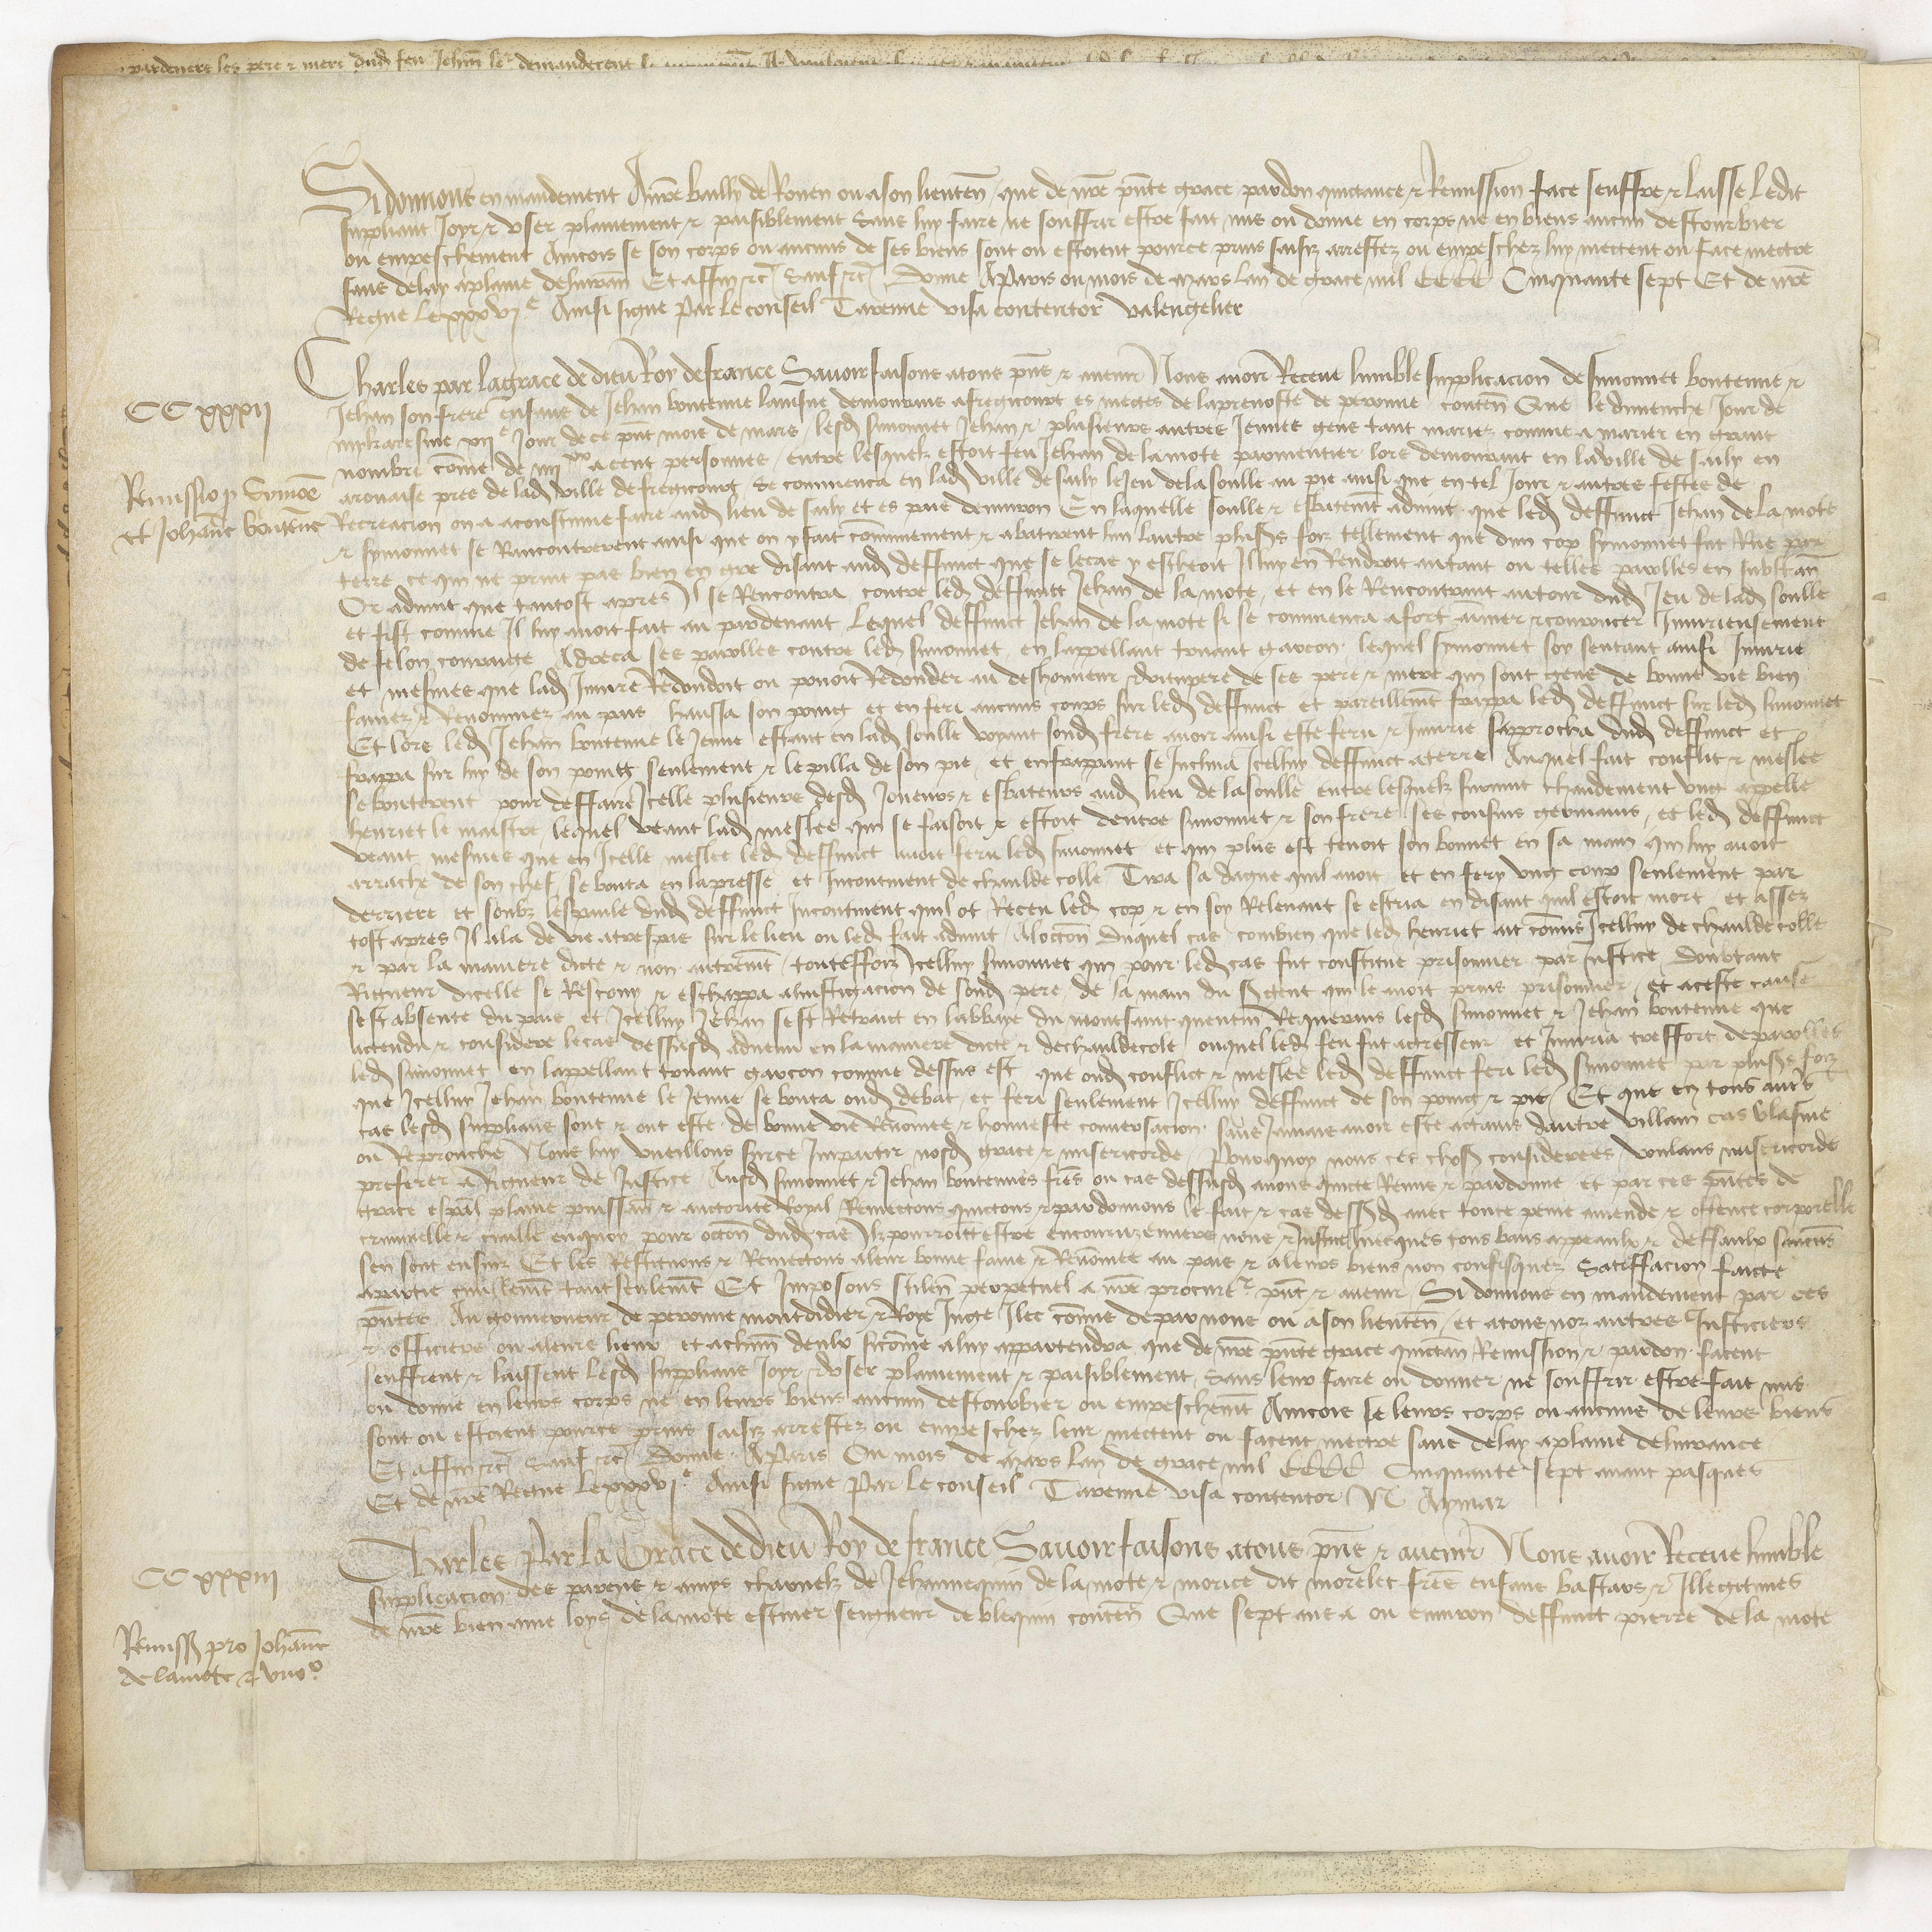 pardevers les pere & mere dud feu Jehan le demanderent
Si donnons en mandement A nre bailly de Rouen ou a son lieuten que de nre pnte grace pardon quictance & Remission face seuffre & laisse Ledit
suppliant Joyr & user plainement & paisiblement Sans luy faire ne souffrir estre fait mis ou donne en corps ne en biens aucun destourbier
ou empeschement Aincois se son corps ou aucuns de ses biens sont ou estoient pource prins saisiz arrestez ou empeschez luy mectent ou face mectre
sans delay a plaine delivran Et affin &c Sauf &c Donne A Paris ou mois de Mars Lan de grace mil CCCC Cinquante sept Et de nre
Regne Le xxxvj e Ainsi signe Par Le conseil Tavenne visa contentor Valengelier
Charles par La grace de dieu Roy de france Savoir faisons a tous pns & avenir Nous avoir Receue humble supplicacion de simonnet bontenne &
CCxxxij
Jehan son frere enfans de Jehan bontenne laisne demourans a fregicourt es mectes de la prevoste de peronne conten Que le dimenche Jour de
mykaresme xij e Jour de ce pnt mois de mars lesd simonnet Jehan & plusieurs autres Jeunes gens tant mariez comme a marier en grant
nombre come de iiij xx a cent personnes entre lesquelz estoit feu Jehan de la mote parmentier lors demourant en la ville de saily en
Remissio p Symoe
arouaise pres de lad ville de fregicourt se commenca en lad ville de saily le Jeu de la soulle au pie ainsi que en tel Jour & autres festes de
et Johane bontene
Recreacion on a acoustume faire aud lieu de saily et es pais denviron En laquelle soulle & esbatemt advint que led deffunct Jehan de La mote
& symonnet se Rancontrerent ainsi que on y fait communement & abatirent lun lautre plus s foiz tellement que dun cop symonnet fut Rue par
terre ce qui ne print pas bien en gre disant aud deffunct que se le cas y escheoit Il luy en Rendroit autant ou telles parolles en substan
Or advint que tantost apres Il se Rencontra contre led deffunct Jehan de la mote et en le Rencontrant autour dud Jeu de lad soulle
et fist comme Il luy avoit fait au pardevant Lequel deffunct Jehan de la mote si se commenca a fort aimer & courroucer Injurieusement
de felon couraige Adreca ses parolles contre led simonnet en lappellant truant garcon lequel symonnet soy sentant ainsi Injurie
et mesmes que lad Injure Redondoit ou povoit Redonder au deshonneur & vitupere de ses pere & mere qui sont gens de bonne vie bien
famez & Renommez au pais haussa son poinct et en feri aucuns coups sur led deffunct et pareillemt frappa led deffunct sur led simonnet
Et lors led Jehan bontenne le Jeune estant en lad soulle voyant sond frere avoir ainsi este feru & Injurie saprocha dud deffunct et
frappa sur luy de son poinct seulement & le pilla de son pie et en frappant se Inclina Icelluy deffunct a terre Auquel fait conflit & meslee
se bouterent pour deffaire Icelle plusieurs desd Joueurs & esbateurs aud lieu de la soulle entre lesquelz survint chaudement ung appelle
henriet le maistre lequel veant lad meslee qui se faisoit & estoit dentre simonnet & son frere ses cousins germains et led deffunct
veant mesmes que en Icelle meslee led deffunct avoit feru led simonnet et qui plus est tenoit son bonnet en sa main qui luy avoit
arrache de son chef se bouta en la presse et Incontinent de chaulde colle Tira sa dague quil avoit et en fery ung coup seulement par
derriere et soubz lespaule dud deffunct Incontinent quil ot Receu led cop & en soy Relevant se escria en disant quil estoit mort et assez
tost apres Il ala de vie a trespas sur le lieu ou led fait advint A loccon Duquel cas combien que led henriet ait comis Icelluy de chaulde colle
& par la maniere dicte & non autremt touteffoiz Icelluy simonnet qui pour led cas fut constitue prisonnier par Justice Doubtant
Rigueur dicelle se Rescouy & eschappa a linstigacion de sond pere de la main du sergent qui le avoit prins prisonnier et a ceste cause
sest absente du pais et Icelluy Jehan sest Retrait en labbaye du mont saint quentin Requerans lesd simonnet & Jehan bontenne que
actendu & considere le cas dessusd advenu en la maniere dicte & de chaulde cole ouquel led feu fut agresseur et Injuria tresfort de parolles
led simonnet en lappellant truant garcon comme dessus est que oud conflict & meslee led deffunct feru led symonnet par plus s foiz
que Icelluy Jehan bontenne le Jeune se bouta oud debat et feri seulement Icelluy deffunct de son poing & pie Et que en tous autrs
cas lesd supplians sont & ont este de bonne vie Renomee & honneste conversacion sans Jamais avoir este actains dautre villain cas blasme
ou Reprouche Nous luy vueillons sur ce Impartir nosd grace & misericorde Pourquoy nous ces chos considerees voulans misericorde
preferer a Rigueur de Justice Ausd simonnet & Jehan bontennes fres ou cas dessusd avons quicte Remis & pardonne et par ces pntes de
grace espal plaine puissan & auctorite Royal Remectons quictons & pardonnons le fait & cas dessusd avec toute peine amende & offence corporelle
criminelle & civille en quoy pour occon dud cas Ilz pourroient estre encouruz envers nous & Justice avecques tous bans appeaulx & deffaulx saucuns
sen sont ensuiz Et les Restituons & Remectons a leur bonne fame & Renomee au pais & a leurs biens non confisquez Satisffacion faicte
a partie civillemt tant seulemt Et Imposons silen perpetuel a nre procureur pnt & avenir Si donnons en mandement par ces
pntes Au gouverneur de peronne mondidier & Roye Juge Ilec comme de par nous ou a son lieuten et a tous noz autres Justiciers
& officiers ou a leurs lieux et a chun deulx sicomme a luy appartendra que de nre pnte grace quictan Remission & pardon facent
seuffrent & laissent lesd supplians Joyr & User plainement & paisiblement Sans leur faire ou donner ne souffrir estre fait mis
ou donne en leurs corps ne en leurs biens aucun destourbier ou empeschemt Aincois se leurs corps ou aucuns de leurs biens
sont ou estoient pource prins saisiz arrestez ou empeschez leur mectent ou facent mectre sans delay a plaine delivrance
Et affin &c Sauf &c Donne A Paris Ou mois de Mars Lan de grace mil CCCC Cinquante sept avant pasques
Et de nre Regne Le xxxvj e Ainsi signe Par Le conseil Tavenne visa contentor N Aymar
Charles Par La Grace de dieu Roy de france Savoir faisons a tous pns & avenir Nous avoir Receue humble
CCxxxiij
supplicacion des parens & amys charnelz de Jehannequin de la mote & morice dit morelet freres enfans bastars & Illegitimes
de nre bien ame loys de la mote escuier seigneur de blequin conten Que sept ans a ou environ deffunct pierre de la mote
Remiss pro Johane
de lamote &